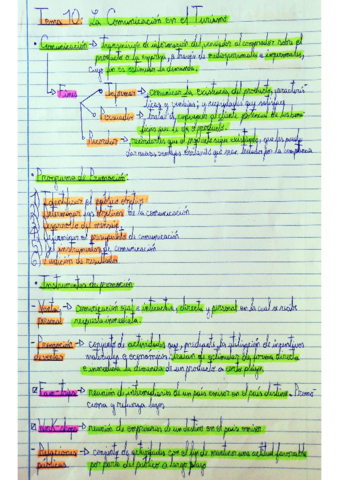 Tema 10: La Comunicación en el Turismo
• Comunicación → transmisión de información del vendedor al comprador sobre el
producto o la empresa, a través de medios personales e impersonales,
cuyo fin es estimular la demanda.
Fines
Informar → Comunicar la existencia del producto, caracterís-
ticas y ventajas; y necesidades que satisface
Persuadir → tratar de convencer al cliente potencial de los bene-
ficios que da el producto.
Recordar → recordarles que el producto sigue existiendo, que les puede
dar nuevas ventajas evitando que sean tentados por la competencia
• Programa de Promoción:
1 Identificar el público objetivo
2 Determinar los objetivos de la comunicación
3 Desarrollo del mensaje
4 Determinar el presupuesto de comunicación
5 instrumentos de comunicación
6 Medición de resultados
• Instrumentos de promoción
- Venta → comunicación oral e interactiva, directa y personal en la cual se recibe
personal respuesta inmediata.
- Promoción → conjunto de actividades que, mediante la utilización de incentivos
de ventas materiales o económicos, tratan de estimular de forma directa
e inmediata la demanda de un producto a corto plazo.
Fam trips → reunión de intermediarios de un país emisor en el país destino. Promo-
ciona y refuerza lazos.
Workshops → reunión de empresarios de un destino en el país emisor.
- Relaciones → conjunto de actividades con el fin de mantener una actitud favorable
públicas por parte del público a largo plazo